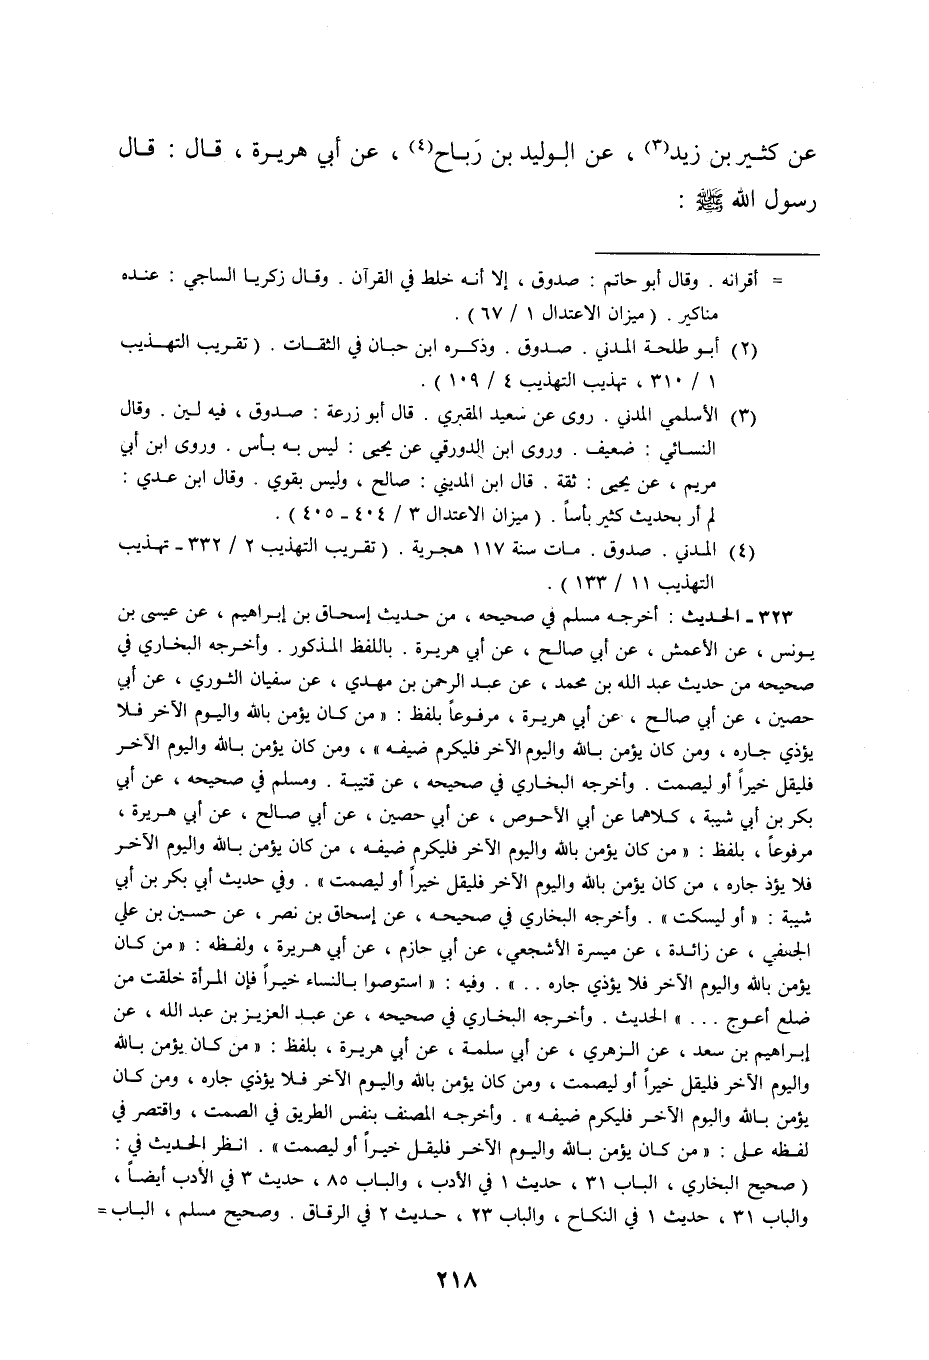 عن كثير بن زيد(٣) ، عن الوليد بن رَباح(٤) ، عن أبي هريرة ، قال : قال
رسول الله ﷺ :
= أقرانه . وقال أبو حاتم : صدوق ، إلا أنه خلط في القرآن . وقال زكريا الساجي : عنده
مناكير . ( ميزان الاعتدال ١ / ٦٧ ) .
(٢) أبو طلحة المدني . صدوق . وذكره ابن حبان في الثقات . ( تقريب التهذيب
١ / ٣١٠ ، تهذيب التهذيب ٤ / ١٠٩ ) .
(٣) الأسلمي المدني . روى عن سعيد المقبري . قال أبو زرعة : صدوق ، فيه لين . وقال
النسائي : ضعيف . وروى ابن الدورقي عن يحيى : ليس به بأس . وروى ابن أبي
مريم ، عن يحيى : ثقة . قال ابن المديني : صالح ، وليس بقوي . وقال ابن عدي :
لم أر بحديث كثير بأساً . ( ميزان الاعتدال ٣ / ٤٠٤ - ٤٠٥ ) .
(٤) المدني . صدوق . مات سنة ١١٧ هجرية . ( تقريب التهذيب ٢ / ٣٣٢ - تهذيب
التهذيب ١١ / ١٣٣ ) .
٣٢٣ - الحديث : أخرجه مسلم في صحيحه ، من حديث إسحاق بن إبراهيم ، عن عيسى بن
يونس ، عن الأعمش ، عن أبي صالح ، عن أبي هريرة . باللفظ المذكور . وأخرجه البخاري في
صحيحه من حديث عبد الله بن محمد ، عن عبد الرحمن بن مهدي ، عن سفيان الثوري ، عن أبي
حصين ، عن أبي صالح ، عن أبي هريرة ، مرفوعاً بلفظ : « من كان يؤمن بالله واليوم الآخر فلا
يؤذي جاره ، ومن كان يؤمن بالله واليوم الآخر فليكرم ضيفه » ، ومن كان يؤمن بالله واليوم الآخر
فليقل خيراً أو ليصمت . وأخرجه البخاري في صحيحه ، عن قتيبة . ومسلم في صحيحه ، عن أبي
بكر بن أبي شيبة ، كلاهما عن أبي الأحوص ، عن أبي حصين ، عن أبي صالح ، عن أبي هريرة ،
مرفوعاً ، بلفظ : « من كان يؤمن بالله واليوم الآخر فليكرم ضيفه ، من كان يؤمن بالله واليوم الآخر
فلا يؤذ جاره ، من كان يؤمن بالله واليوم الآخر فليقل خيراً أو ليصمت » . وفي حديث أبي بكر بن أبي
شيبة : « أو ليسكت » . وأخرجه البخاري في صحيحه ، عن إسحاق بن نصر ، عن حسين بن علي
الجعفي ، عن زائدة ، عن ميسرة الأشجعي، عن أبي حازم ، عن أبي هريرة ، ولفظه : « من كان
يؤمن بالله واليوم الآخر فلا يؤذي جاره .. » . وفيه : « استوصوا بالنساء خيراً فإن المرأة خلقت من
ضلع أعوج ... » الحديث . وأخرجه البخاري في صحيحه ، عن عبد العزيز بن عبد الله ، عن
إبراهيم بن سعد ، عن الزهري ، عن أبي سلمة ، عن أبي هريرة ، بلفظ : « من كان يؤمن بالله
واليوم الآخر فليقل خيراً أو ليصمت ، ومن كان يؤمن بالله واليوم الآخر فلا يؤذي جاره ، ومن كان
يؤمن بالله واليوم الآخر فليكرم ضيفه » . وأخرجه المصنف بنفس الطريق في الصمت ، واقتصر في
لفظه على : « من كان يؤمن بالله واليوم الآخر فليقل خيراً أو ليصمت » . انظر الحديث في :
( صحيح البخاري ، الباب ٣١ ، حديث ١ في الأدب ، والباب ٨٥ ، حديث ٣ في الأدب أيضاً ،
والباب ٣١ ، حديث ١ في النكاح ، والباب ٢٣ ، حديث ٢ في الرقاق . وصحيح مسلم ، الباب =
٢١٨